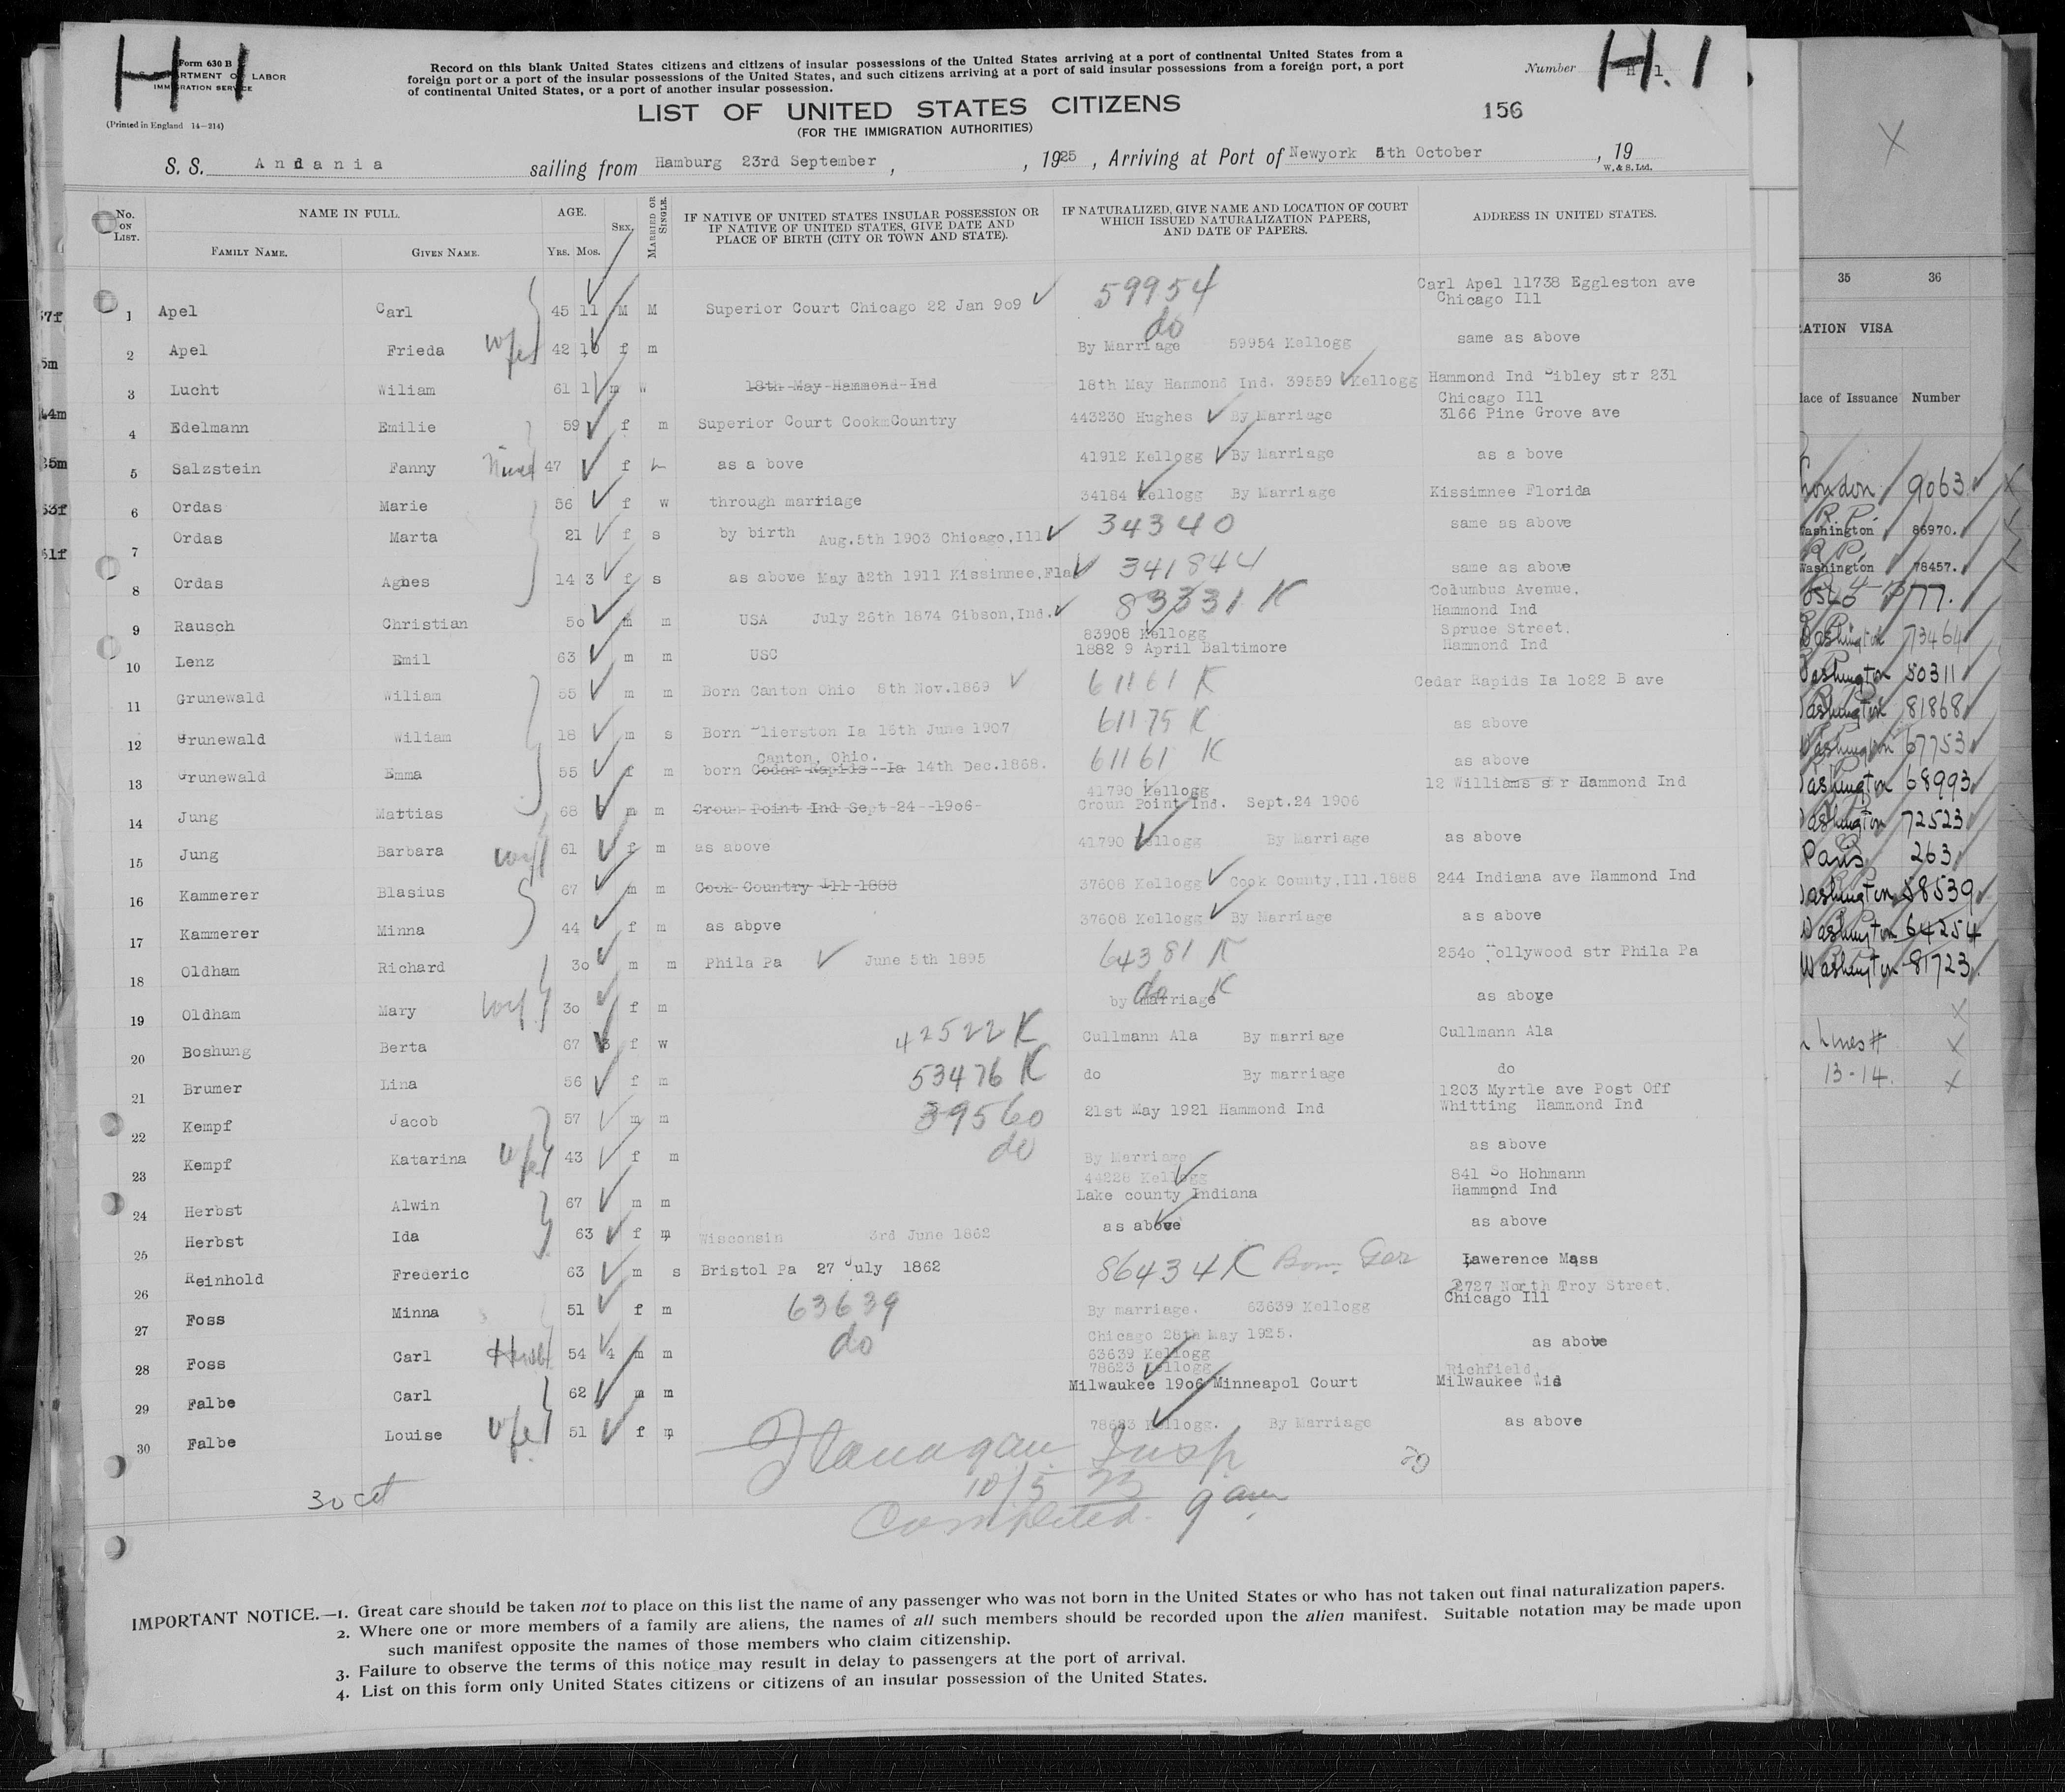 H 1
Form 630 B
DEPARTMENT OF LABOR
IMMIGRATION SERVICE
(Printed in England 14—214)
Record on this blank United States citizens and citizens of insular possessions of the United States arriving at a port of continental United States from a
foreign port or a port of the insular possessions of the United States, and such citizens arriving at a port of said insular possessions from a foreign port, a port
of continental United States, or a port of another insular possession.
Number H 1
H. 1.
LIST OF UNITED STATES CITIZENS
(FOR THE IMMIGRATION AUTHORITIES)
156
S. S. Andania sailing from Hamburg 23rd September , , 1925 , Arriving at Port of Newyork 5th October , 19
W. & S. Ltd.
No. ON LIST. NAME IN FULL. FAMILY NAME. GIVEN NAME. AGE. Yrs. Mos. SEX. MARRIED OR SINGLE. IF NATIVE OF UNITED STATES INSULAR POSSESSION OR IF NATIVE OF UNITED STATES, GIVE DATE AND PLACE OF BIRTH (CITY OR TOWN AND STATE). IF NATURALIZED, GIVE NAME AND LOCATION OF COURT WHICH ISSUED NATURALIZATION PAPERS, AND DATE OF PAPERS. ADDRESS IN UNITED STATES.
1 Apel Carl 45 11 M M Superior Court Chicago 22 Jan 9o9 59954 Carl Apel 11738 Eggleston ave Chicago Ill
2 Apel Frieda wife 42 10 f m do By Marriage 59954 Kellogg same as above
3 Lucht Wiliam 61 1 m w 18th May Hammond Ind 18th May Hammond Ind. 39559 Kellogg Hammond Ind Sibley str 231
4 Edelmann Emilie 59 f m Superior Court CookmCountry 443230 Hughes By Marriage Chicago Ill 3166 Pine Grove ave
5 Salzstein Fanny 47 f as a bove 41912 Kellogg By Marriage as a bove
6 Ordas Marie 56 f w through marriage 34184 Kellogg By Marriage Kissimnee Florida
7 Ordas Marta 21 f s by birth Aug.5th 1903 Chicago,Ill 34340 same as above
8 Ordas Agnes 14 3 f s as above May 12th 1911 Kissimnee,Fla 341844 same as above
9 Rausch Christian 5o m m USA July 26th 1874 Gibson,Ind. 83331 K Columbus Avenue, Hammond Ind
10 Lenz Emil 63 m m USC 83908 Kellogg 1882 9 April Baltimore Spruce Street, Hammond Ind
11 Grunewald Wiliam 55 m m Born Canton Ohio 8th Nov.1869 61161 K Cedar Rapids Ia 1o22 B ave
12 Grunewald Wiliam 18 m s Born lierston Ia 16th June 1907 61175 K as above
13 Grunewald Emma 55 f m born Cedar Rapids Ia Canton, Ohio. 14th Dec.1868. 61161 K as above
14 Jung Mattias 68 m m Croun Point Ind Sept 24 19o6 41790 Kellogg Croun Point Ind. Sept.24 1906 12 Williams str Hammond Ind
15 Jung Barbara wife 61 f m as above 41790 Kellogg By Marriage as above
16 Kammerer Blasius 67 m m Cook Country Ill 1888 37608 Kellogg Cook County,Ill.1888 244 Indiana ave Hammond Ind
17 Kammerer Minna 44 f m as above 37608 Kellogg By Marriage as above
18 Oldham Richard 3o m m Phila Pa June 5th 1895 64381 K 254o ollywood str Phila Pa
19 Oldham Mary wife 3o f m do K by marriage as above
20 Boshung Berta 67 f w 42522 K Cullmann Ala By marriage Cullmann Ala
21 Brumer Lina 56 f m 53476 K do By marriage do
22 Kempf Jacob 57 m m 39560 21st May 1921 Hammond Ind 1203 Myrtle ave Post Off Whitting Hammond Ind
23 Kempf Katarina wife 43 f m do By Marriage as above
24 Herbst Alwin 67 m m 44228 Kellogg Lake county Indiana 841 So Hohmann Hammond Ind
25 Herbst Ida 63 f m Wisconsin 3rd June 1862 as above as above
26 Reinhold Frederic 63 m s Bristol Pa 27 July 1862 86434 K Born Ger Lawerence Mass
27 Foss Minna 51 f m 63639 By marriage. 63639 Kellogg 2727 North Troy Street. Chicago Ill
28 Foss Carl Husb 54 4 m m do Chicago 28th May 1925. 63639 Kellogg as above
29 Falbe Carl 62 m m 78623 Kellogg Milwaukee 19o6 Minneapol Court Richfield, Milwaukee Wis
30 Falbe Louise wife 51 f m 78623 Kellogg. By Marriage as above
Flanagan Insp
30 cit
10/5
Completed. 9 am
IMPORTANT NOTICE.—1. Great care should be taken not to place on this list the name of any passenger who was not born in the United States or who has not taken out final naturalization papers.
2. Where one or more members of a family are aliens, the names of all such members should be recorded upon the alien manifest. Suitable notation may be made upon
such manifest opposite the names of those members who claim citizenship.
3. Failure to observe the terms of this notice may result in delay to passengers at the port of arrival.
4. List on this form only United States citizens or citizens of an insular possession of the United States.
35 36
ATION VISA
lace of Issuance Number
London 9063
R.P.
Washington 86970.
R.P.
Washington 78457.
77.
Washington 73464
Washington 80311
Washington 81868
Washington 67753
Washington 68993
Washington 72523
Paris 263
Washington 58539
Washington 64254
Washington 81723
Lines #
13-14.